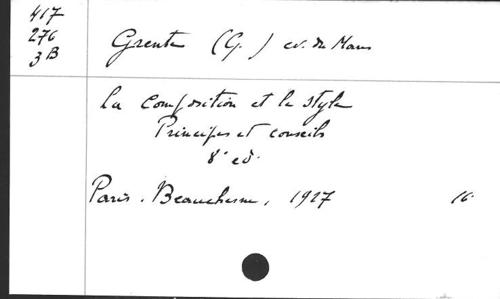 417
276
3B
Grente (G.) ev. du Mans
La composition et le style
Principes et conseils
8e ed.
Paris. Beauchesne, 1927 16